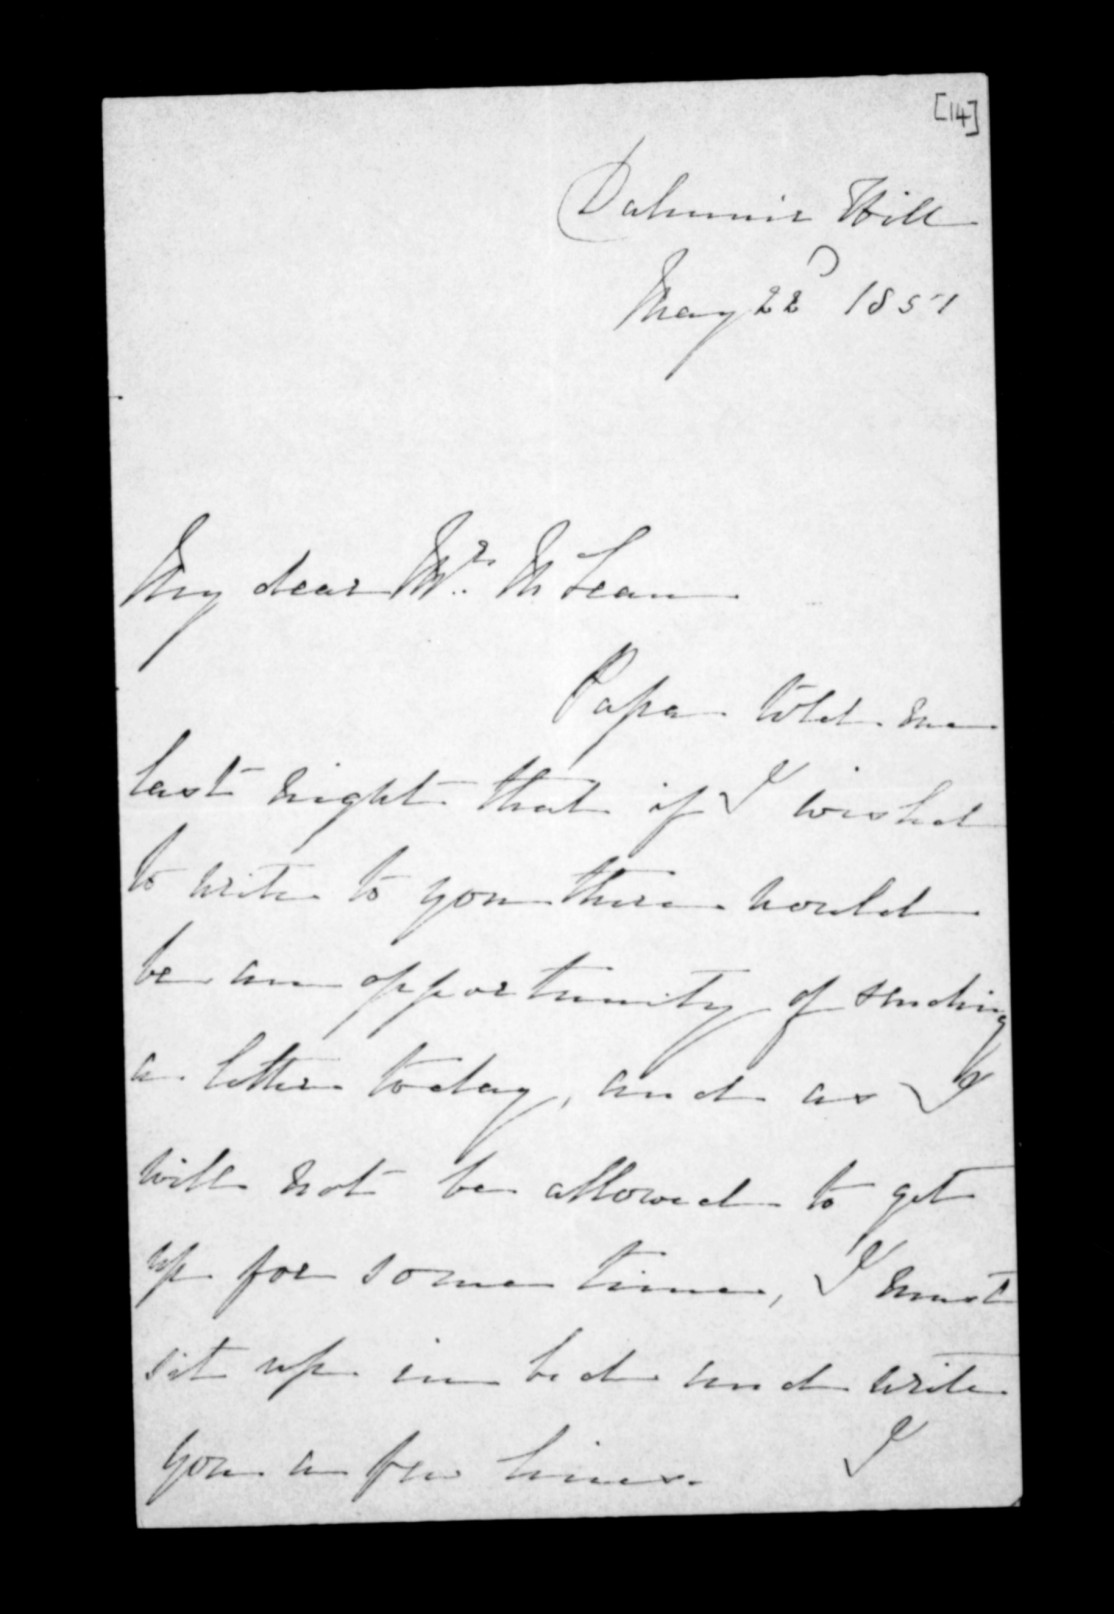 [14]
Dalmuir Hill
May 22d 1851
My dear Mr. McLean
Papa told me
last night that if I wished
to write to you there would
be an opportunity of sending
a letter today, and as I
will not be allowed to get
up for some time, I must
sit up in bed and write
you a few lines. I